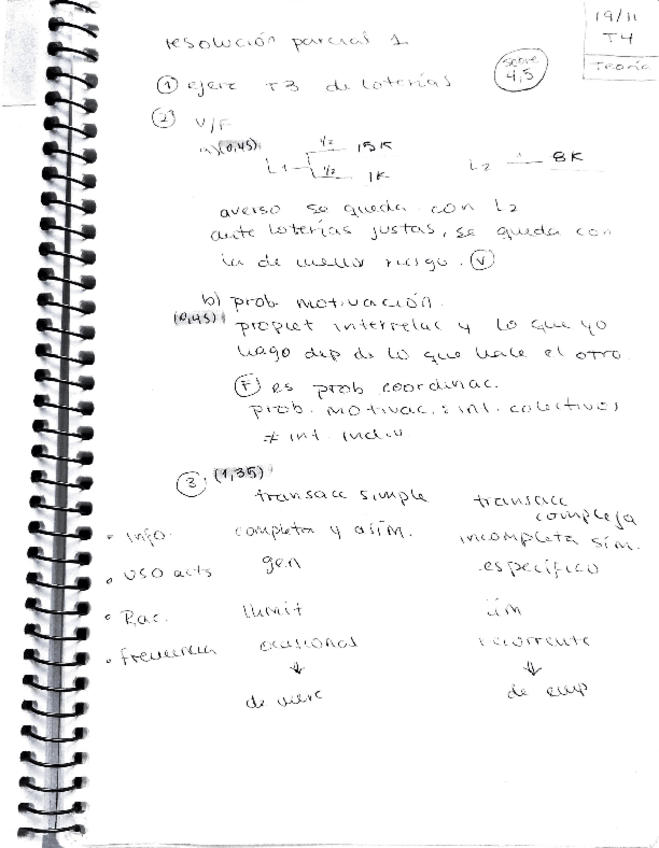 19/11
T4
Teoría
resolución parcial 1
score
4,5
① ejerc T3 de loterías
② V/F
a) (0,45)
L1 1/2 15K
1/2 1K
L2 1 8K
averso se queda con L2
ante loterías justas, se queda con
la de menor riesgo. Ⓥ
b) prob. motivación.
(0,45)
propiet interrelac y lo que yo
hago dep de lo que hace el otro.
Ⓕ es prob coordinac.
prob. motivac. : int. colectivos
≠ int. indiv
③. (1,35)
transacc simple transacc compleja
• Info. completa y asim. incompleta sim.
• uso acts gen específico
• Rac. ilimit lim
• frecuencia ocasional recurrente
↓ ↓
de merc de emp